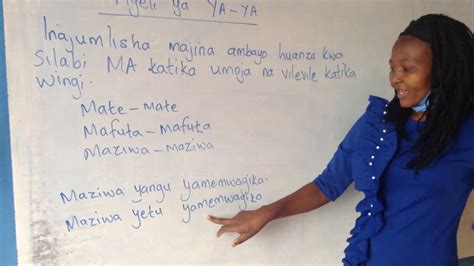 Ngeli ya YA-YA
Inajumlisha majina ambayo huanza kwa
silabi MA katika umoja na vilevile katika
wingi.
Mate-mate
Mafuta-Mafuta
Maziwa-maziwa
Maziwa yangu yamemwagika.
Maziwa yetu yamemwagika